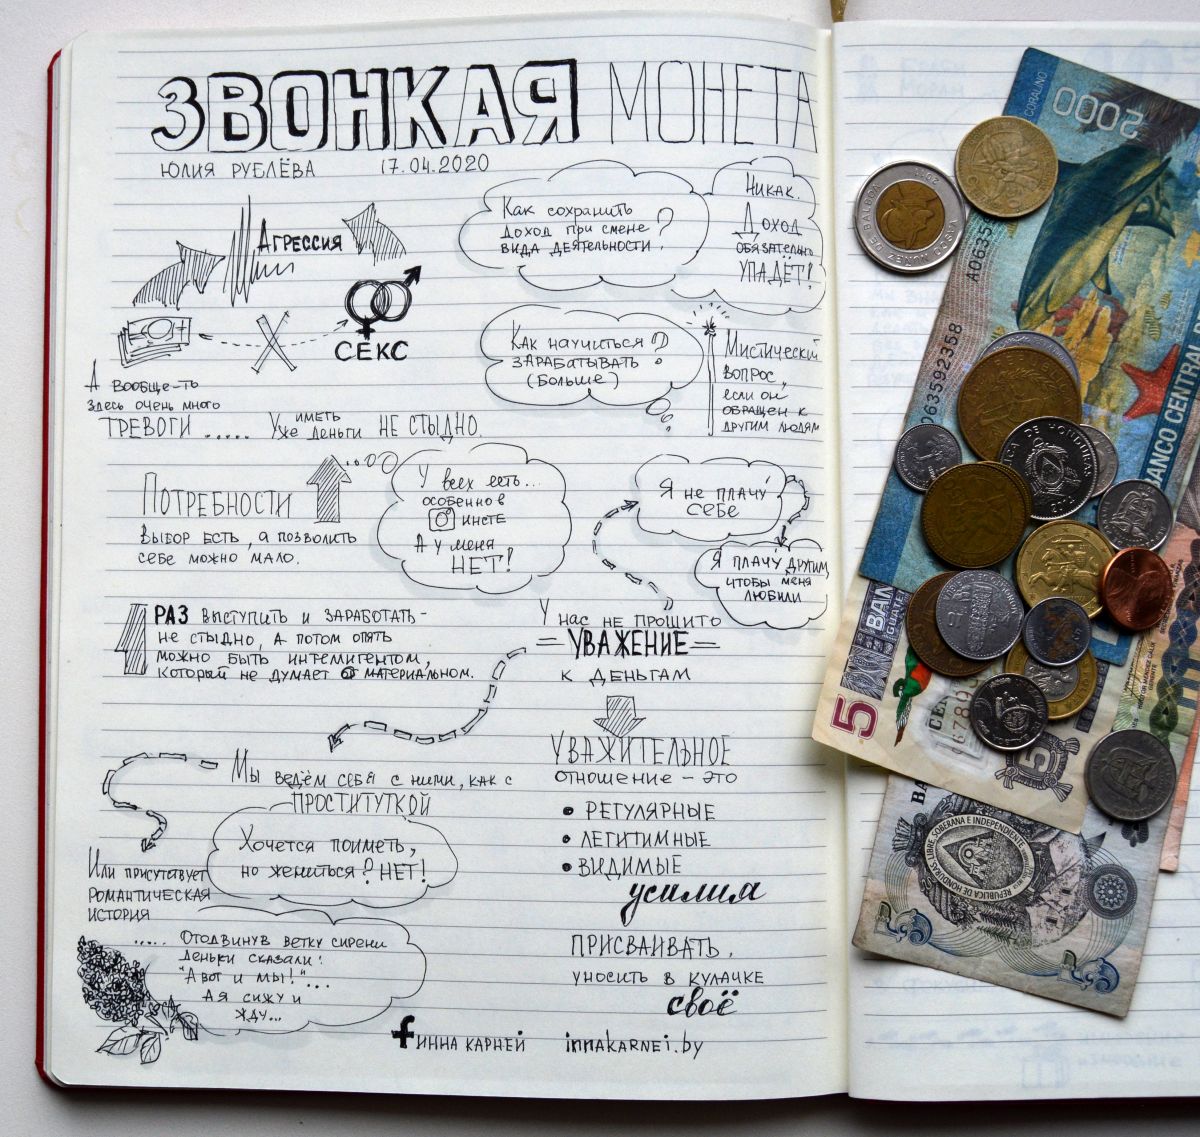 ЗВОНКАЯ МОНЕТА
ЮЛИЯ РУБЛЁВА 17.04.2020
АГРЕССИЯ
СЕКС
А ВООБЩЕ-ТЬ
ЗДЕСЬ ОЧЕНЬ МНОГО
ТРЕВОГИ .....
УЖЕ ИМЕТЬ ДЕНЬГИ НЕ СТЫДНО.
КАК СОХРАНИТЬ
ДОХОД ПРИ СМЕНЕ
ВИДА ДЕЯТЕЛЬНОСТИ?
НИКАК.
ДОХОД
ОБЯЗАТЕЛЬНО
УПАДЁТ!
КАК НАУЧИТЬСЯ
ЗАРАБАТЫВАТЬ
(БОЛЬШЕ)?
МИСТИЧЕСКИЙ
ВОПРОС,
ЕСЛИ ОН
ОБРАЩЕН К
ДРУГИМ ЛЮДЯМ
ПОТРЕБНОСТИ
ВЫБОР ЕСТЬ, А ПОЗВОЛИТЬ
СЕБЕ МОЖНО МАЛО.
У ВСЕХ ЕСТЬ...
ОСОБЕННО В
ИНСТЕ
А У МЕНЯ
НЕТ!
Я НЕ ПЛАЧУ́
СЕБЕ
Я ПЛАЧУ́ ДРУГИМ,
ЧТОБЫ МЕНЯ
ЛЮБИЛИ
РАЗ ВЫСТУПИТЬ И ЗАРАБОТАТЬ -
НЕ СТЫДНО, А ПОТОМ ОПЯТЬ
МОЖНО БЫТЬ ИНТЕЛИГЕНТОМ,
КОТОРЫЙ НЕ ДУМАЕТ О МАТЕРИАЛЬНОМ.
У НАС НЕ ПРОШИТО
=УВАЖЕНИЕ=
К ДЕНЬГАМ
МЫ ВЕДЁМ СЕБЯ С НИМИ, КАК С
ПРОСТИТУТКОЙ
ХОЧЕТСЯ ПОИМЕТЬ,
НО ЖЕНИТЬСЯ? НЕТ!
УВАЖИТЕЛЬНОЕ
ОТНОШЕНИЕ - ЭТО
• РЕГУЛЯРНЫЕ
• ЛЕГИТИМНЫЕ
• ВИДИМЫЕ
усилия
ПРИСВАИВАТЬ,
УНОСИТЬ В КУЛАЧКЕ
своё
ИЛИ ПРИСУТСТВУЕТ
РОМАНТИЧЕСКАЯ
ИСТОРИЯ
..... ОТОДВИНУВ ВЕТКУ СИРЕНИ
ДЕНЬГИ СКАЗАЛИ:
"А ВОТ И МЫ!"...
А Я СИЖУ И
ЖДУ...
f ИННА КАРНЕЙ innakarnei.by
2000
CORALINO
A06359
A063592358
BANCO CENTRAL
5
5
REPUBLICA DE HONDURAS, LIBRE, SOBERANA E INDEPENDIENTE
2
2